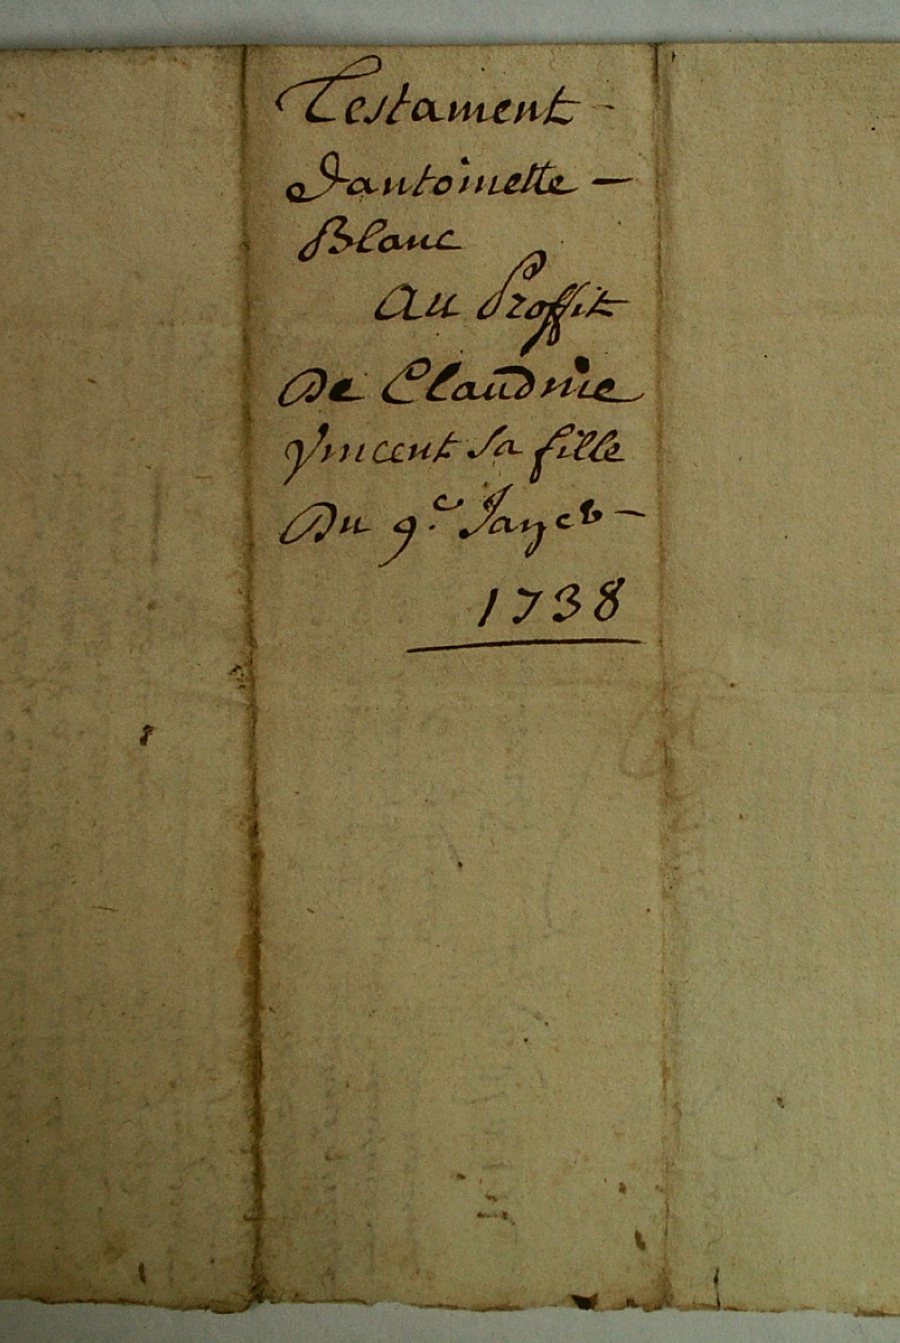 Testament
dantoinette
Blanc
au Proffit
De Claudine
Vincent sa fille
Du 9.e Janer
1738